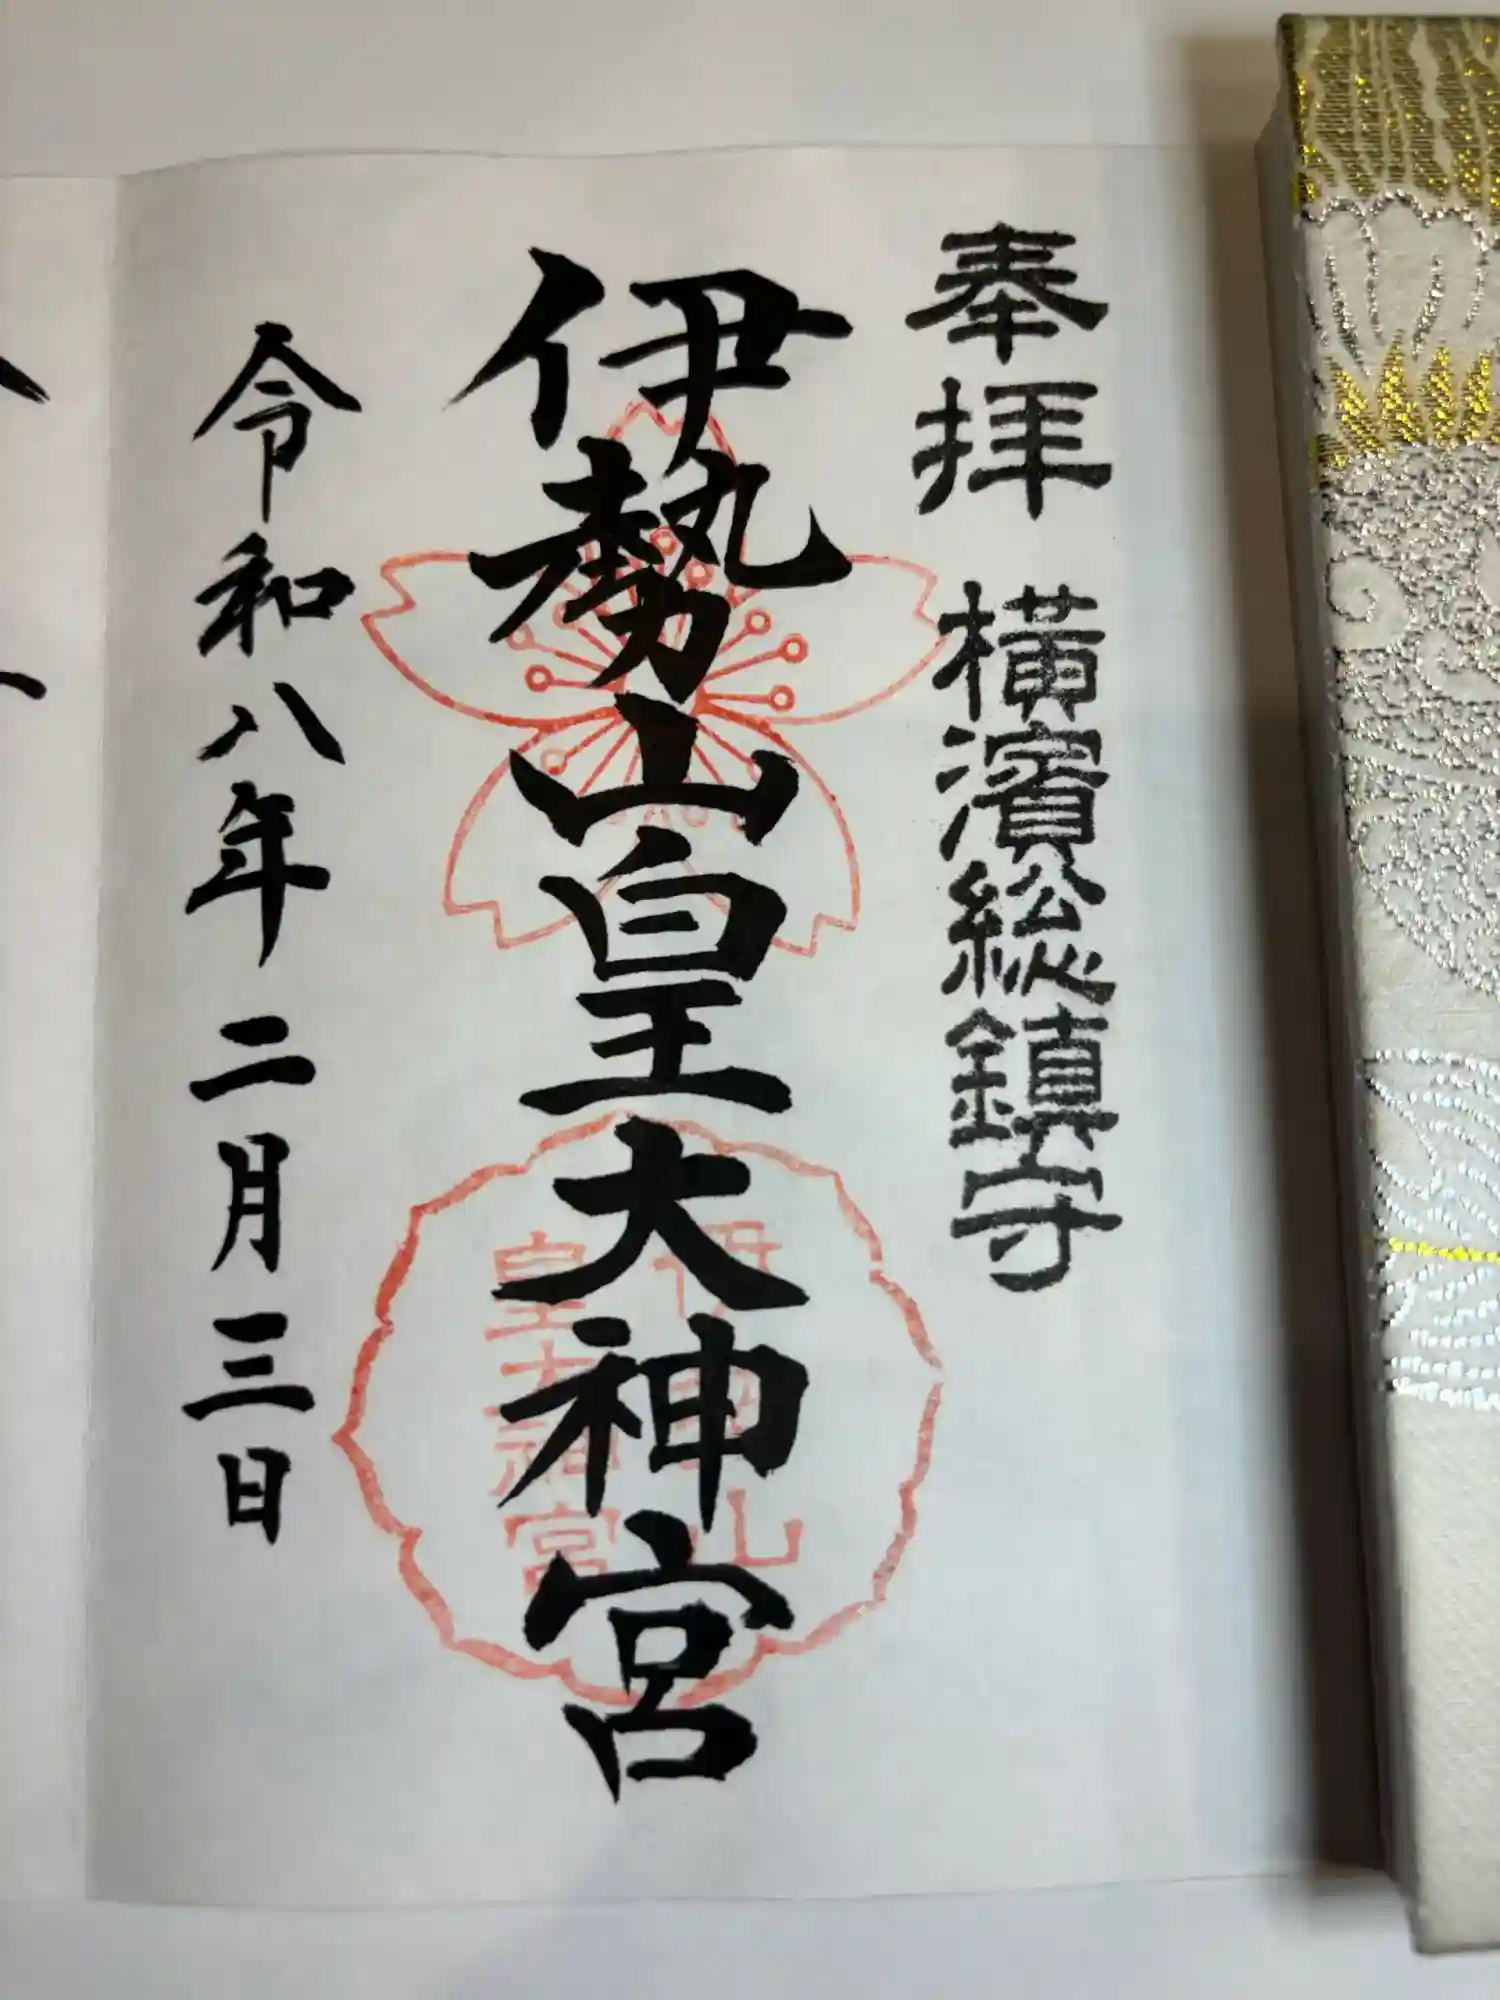 奉拝 横濱総鎮守
伊勢山皇大神宮
令和八年二月三日
伊勢山
皇大神宮